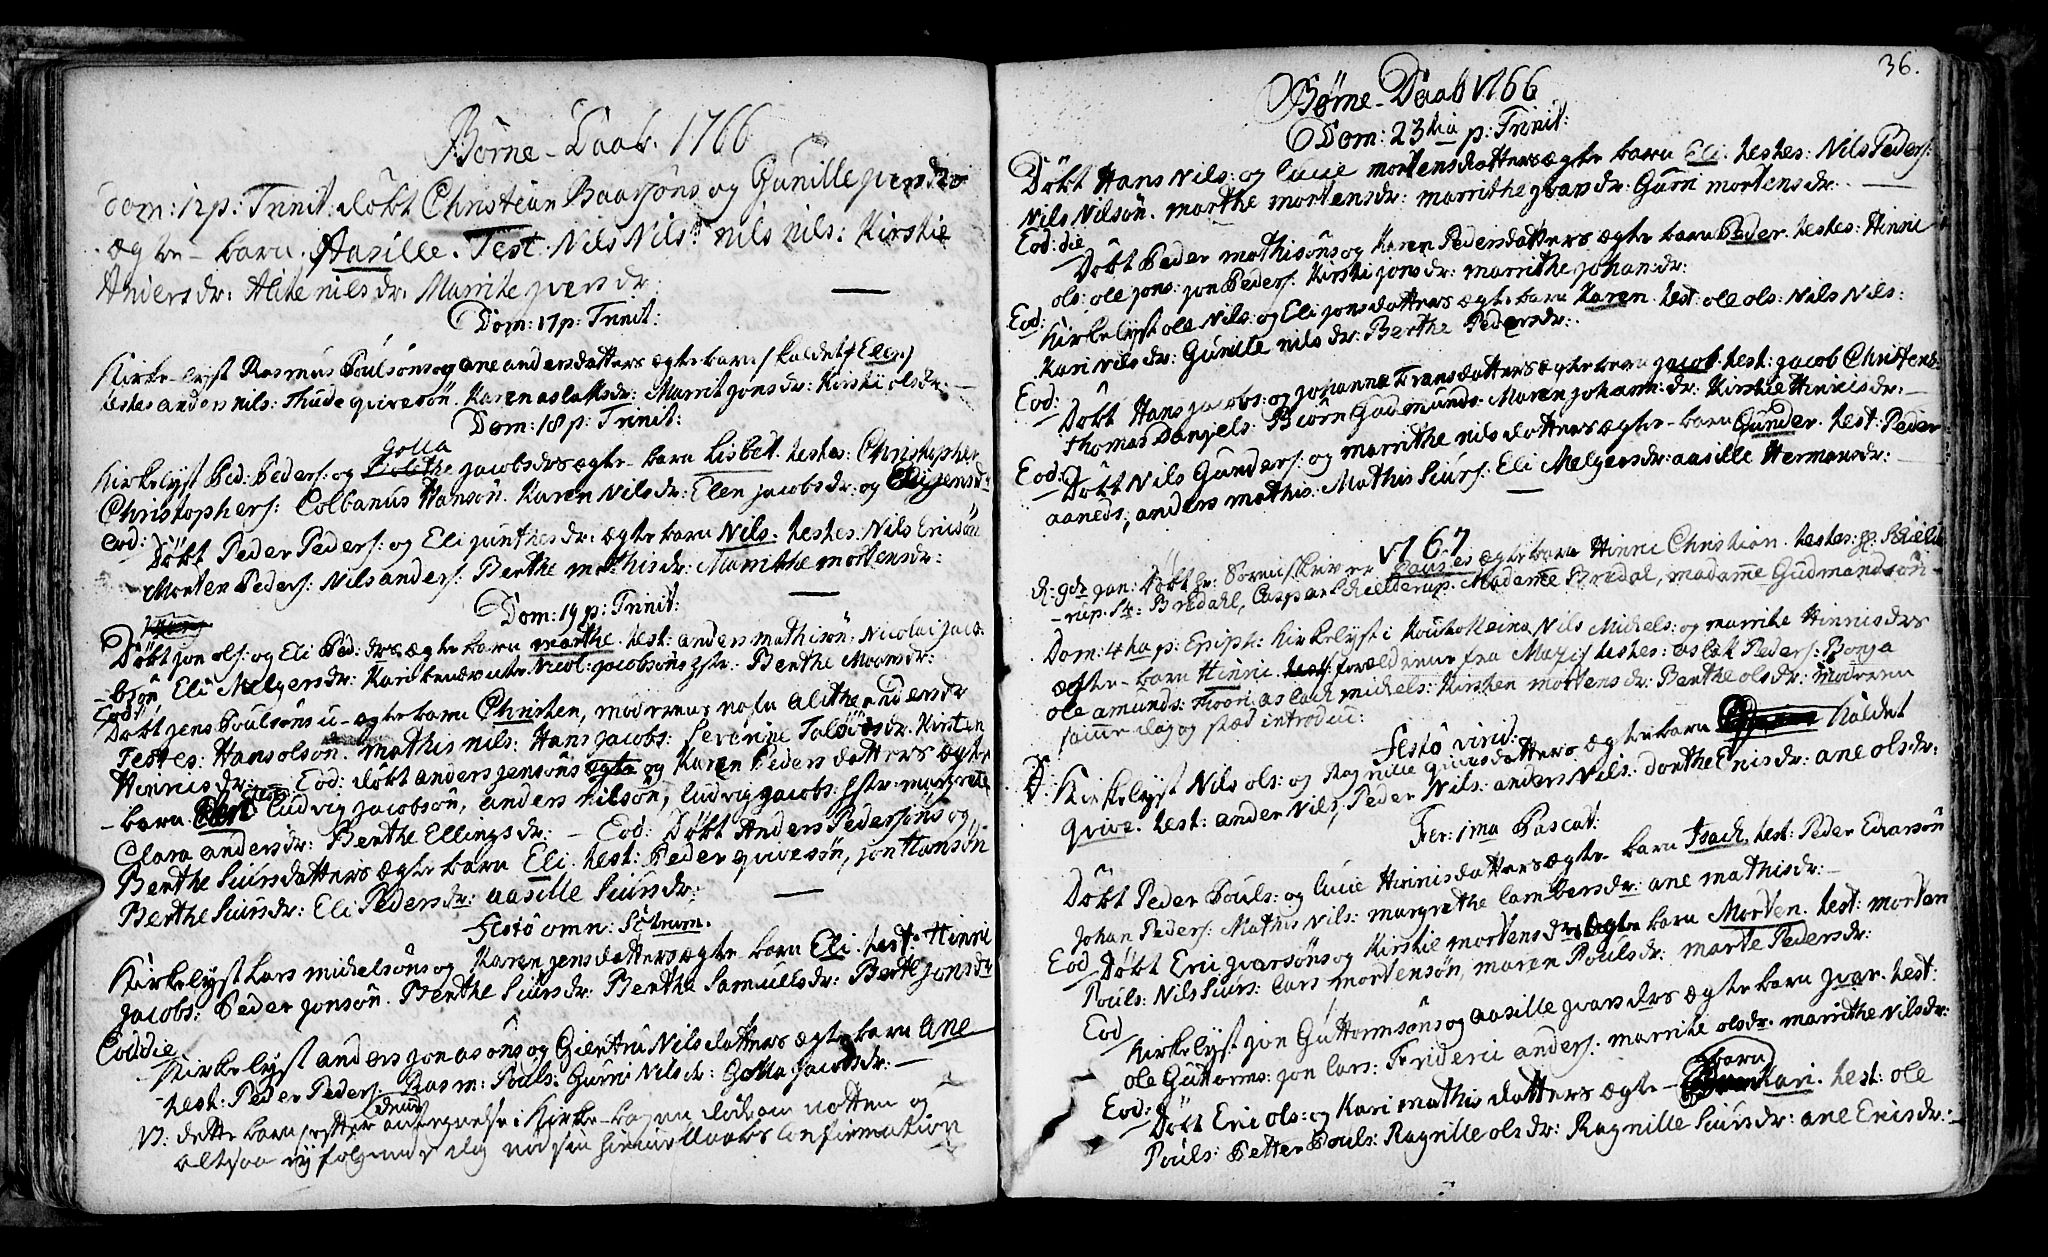 Børne-Daab. 1766
Dom: 12 p: Trinit: døbt Christian Baarsøns og Gunille
ægte-barn. Aasille. Test: Nils Nils: nils nils: Kirstie
Anders dr: Alite nils dr: Marrite jvers dr:
Dom: 17 p: Trinit:
Kirke-lyst Rasmus Poulsøns og ane andersdatters ægte barn kaldet Elen
testes anders nils: Thude qvivesøn. Karen aslaksdr: Marrit jons dr: Kirsti olsdr:
Dom: 18 p: Trinit:
Golla
Kirkelyst Ped: Peders: og jacobsdrs ægte barn Lisbet. testes: Christopher
Christophers: Colbanus Hansøn. Karen Nilsdr: Elen jacobsdr: og Eli jensdr
eod:
Døbt Peder Peders: og Eli dr: ægte barn Nils. testes: Nils Ericsøn
Morten Peders: Nils anders: Berthe mathisdr: Marrithe mortensdr:
Dom: 19 p: Trinit:
Døbt jon ols: og Eli Ped: drs ægte barn marthe. test: anders mathisøn. Nicolai jaco-
-bsøn Eli Melgersdr: Kari Nicol: jacobsøns Berthe Moonsdr:
Eod:
Døbt jens Poulsøns u-ægte barn Christen, moderens nafn alithe andersdr
Testes: Hans olsøn. mathis nils: Hans jacobs: Severine Kirsten
Hinrichsdr: Eod: døbt anders jensøns og Karen Peders datters ægte
-barn ludvig jacobsøn, anders nilsøn, ludvig jacobs: margrete
Clara andersdr: Berthe Ellingsdr: - Eod: Døbt Anders Pedersøns og
Berthe Siursdatters ægte barn Eli. test: Peder qvivesøn, jon Hansøn
Berthe Siursdr: Eli Pedersdr: aasille Siursdr:
Festo omn: Sctrum.
Kirkelyst Lars michelsøns og Karen jensdatters ægte barn Eli. test: Hinri
jacobs: Peder jonsøn. Berthe Siursdr: Berthe Samuelsdr: Berthe jonsdr
Eod: die
Kirkelyst anders jonasøns og Giertru Nilsdatters ægte barn Ane
test: Peder Peders: Rasm: Pouls: Guni Nilsdr: Golla jacobsdr:
dette barn efter antegnelse i Kirke-bogen døde om natten og
altsaa ey følgende dag ved sin hiemmedaabs Confirmation
36.
Børne-Daab 1766
Dom: 23tia p: Trinit:
Døbt Hans Nils: og lucie mortensdatters ægte barn Eli. testes: Nils Peders:
Nils Nilsøn. marthe mortensdr: marrithe jvarsdr: Guri mortensdr:
Eod: die
Døbt Peder mathisøns og Karen Pedersdatters ægte barn Peder. testes: Hinric
ols: ole jons: jon Peders: Kirsti jonsdr: marrithe johansdr:
Eod:
Kirkelyst ole Nils: og Eli jonsdatters ægte barn Karen. test: ole ols: Nils Nils:
Kari nilsdr: Gunille nilsdr: Berthe Pedersdr:
Eod:
Døbt Hans jacobs: og johanna Fransdatters ægte barn jacob. test: jacob Christens:
Thomas Danjels: Biørn Gudmunds: Maren johann: dr: Kirstie Hinricsdr:
Eod:
Døbt Nils Gunders: og marrithe nilsdatters ægte-barn Gunder. test: Peder
aaneds: anders mathis: Mathis Siurs: Eli Melgersdr: aasille Hermansdr:
1767
d: 9de jan: Døbt Hr: Sorenskriver ægte barn Hinric Christian. testes:
Bredahl, Caspar Madame Bredal, madame Gudmandsøn
Dom: 4ta p: Epiph: Kirkelyst i Koutokeino Nils Michels: og marrite Hinricsdrs
ægte-barn Hinric forældrene fra Mazi testes: aslak Peders: Bonja
ole amunds: aslach michels: Kirsten mortensdr: Berthe olsdr: Moderen
samme dag og stæd introduc:
Festo virid:
Kirkelyst Nils ols: og Ragnille qvivesdatters ægte barn kaldet
qvive. test: anders Nils, Peder Nils: anders Nils: dorthe Ericsdr: ane olsdr:
Fer: 1ma Pascat:
Døbt Peder Pouls: og lucie Hinricsdatters ægte barn Isach. test: Peder Edvarsøn
johan Peders: Mathis Nils: margrethe lambersdr: ane mathisdr:
Eod
Døbt Eric jvarsøns og Kirstie mortensdrs ægte barn Morten. test: morten
Pouls: Nils Siurs: lars mortensøn, maren Poulsdr: marte Pedersdr:
Eod
Kirkelyst jon Guttormsøns og aasille jvarsdrs ægte barn jvar. test:
ole Guttorms: jon lars: Frideric anders: marrite olsdr: marrithe Nilsdr:
Eod:
Døbt Eric ols: og Kari mathisdatters ægte- barn Kari. test: ole
Pouls: Petter Pouls: Ragnille olsdr: Ragnille Siursdr: ane Ericsdr: